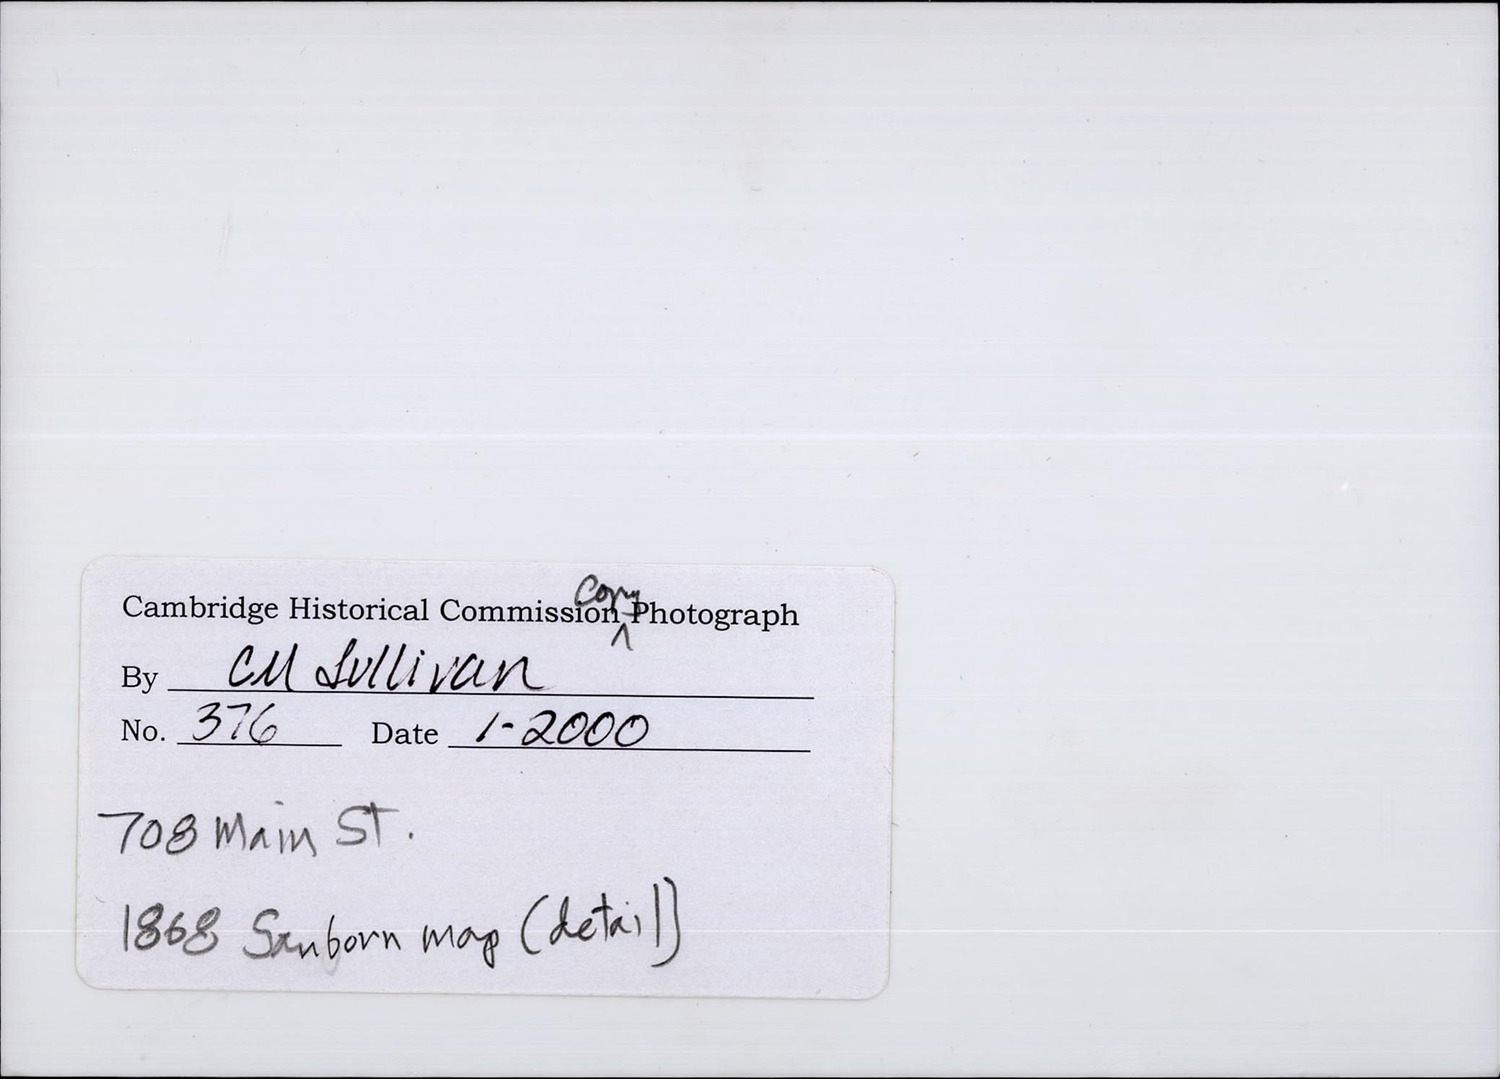 Cambridge Historical Commission Copy Photograph
By CM Sullivan
No. 376 Date 1-2000
708 Main St.
1868 Sanborn map (detail)